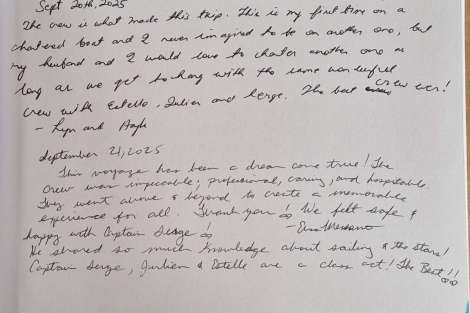 Sept 20th, 2025
The crew is what made this trip. This is my first time on a
chartered boat and I never imagined to be on another one, but
my husband and I would love to charter another one as
long as we get to hang with the same wonderful
crew with Estelle, Julien and Serge. The best crew ever!
- Lyn and
September 21, 2025
This voyage has been a dream come true! The
crew was impeccable; professional, caring, and hospitable
They went above & beyond to create a memorable
experience for all. Thank you! We felt safe &
happy with Captain Serge!
He shared so much knowledge about sailing & the stars!
Captain Serge, Jurlien & Estelle are a class act! The Best!!